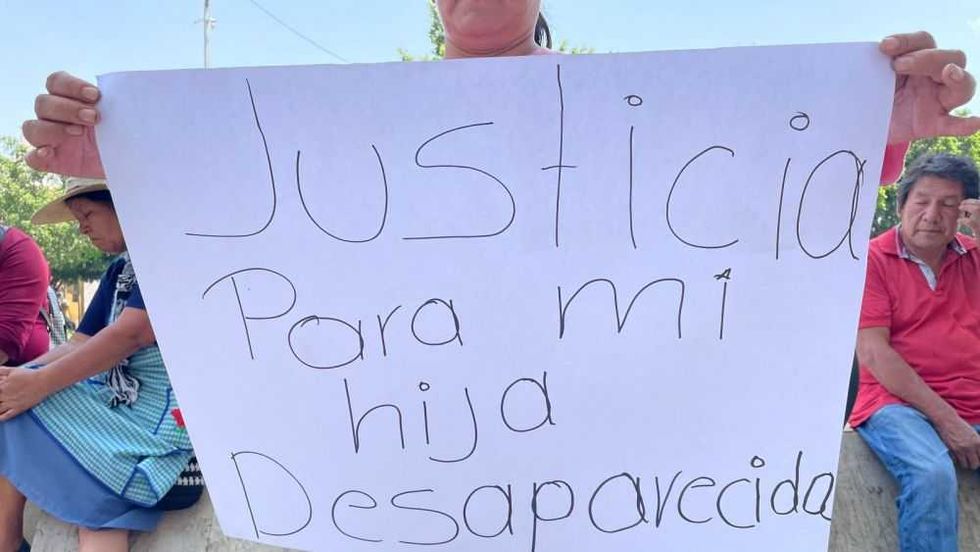 Justicia
Para mi
hija
Desaparecida